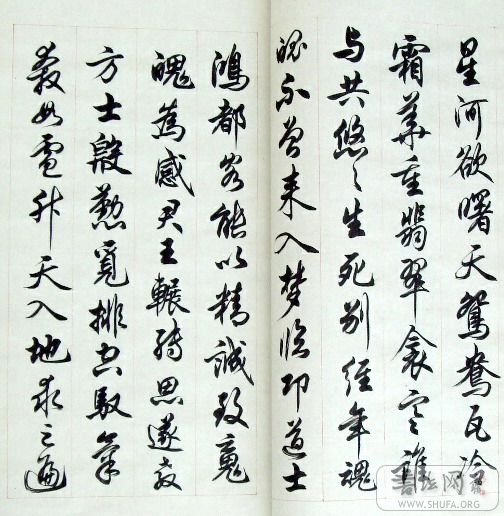 星河欲曙天鴛鴦瓦冷
霜華重翡翠衾寒誰
与共悠々生死别經年魂
魄不曾来入梦臨邛道士
鴻都客能以精誠致魂
魄為感君王輾轉思遂教
方士殷勤覓排空馭氣
奔如電升天入地求之遍
WWW.SHUFA.ORG